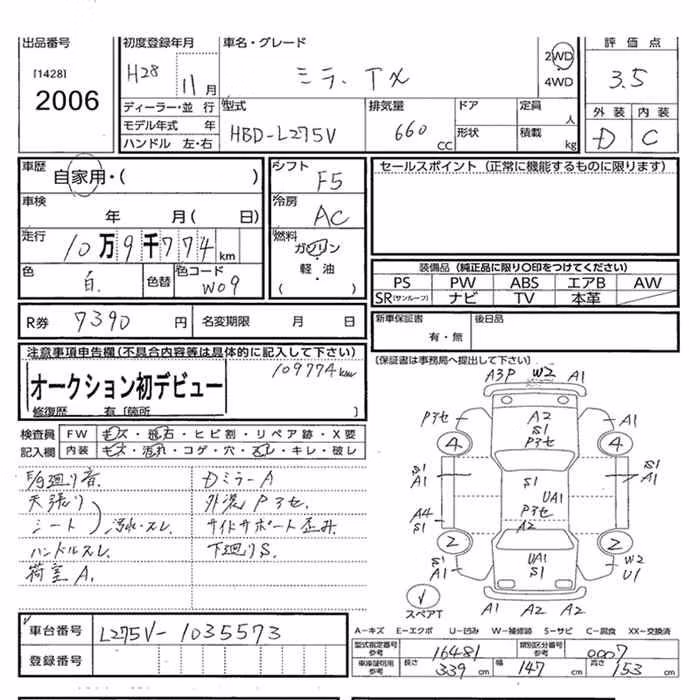 出品番号 初度登録年月 車名・グレード 評価点
[1428] H28 11月 ミラ. TX 2WD 3.5
2006 4WD
ディーラー・並行 型式 排気量 ドア 定員 人 外装 内装
モデル年式 年 HBD-L275V 660 CC 形状 積載 kg D C
ハンドル 左・右
車歴 自家用・( ) シフト F5 セールスポイント (正常に機能するものに限ります)
車検 年 月( 日) 冷房 AC
走行 10万9千774km 燃料 ガソリン
軽・油
( )
色 白. 色替 色コード W09
装備品 (純正品に限り〇印をつけてください)
PS PW ABS エアB AW
SR(サンルーフ) ナビ TV 本革
R券 7390円 名変期限 月 日 新車保証書 有・無 後日品
(保証書は事務局へ提出して下さい)
注意事項申告欄(不具合内容等は具体的に記入して下さい)
109774km
オークション初デビュー
修復歴 有〔箇所 〕
検査員 FW キズ・飛石・ヒビ割・リペア跡・X要
記入欄 内装 キズ・汚れ・コゲ・穴・スレ・キレ・破レ
廻り音. DミラーA
天張り 外装P3セ
シート 汚れ・スレ. サイドサポート歪み
ハンドルスレ. 下廻りS.
荷室A.
A3P W2 A1
P3セ A2 A1
S1
P3セ
4 4
S1 S1 S1
A1 UA1 A1
A4 P3セ
S1 A2
2 2
S1 UA1 W2
A1 S1 U1
スペアT
A1 A2 A2
車台番号 L275V-1035573
登録番号
A-キズ E-エクボ U-凹み W-補修跡 S-サビ C-腐食 XX-交換済
型式指定番号 参考 16481 類別区分番号 参考 0007
車庫証明用 参考 長さ 339cm 幅 147cm 高さ 153cm